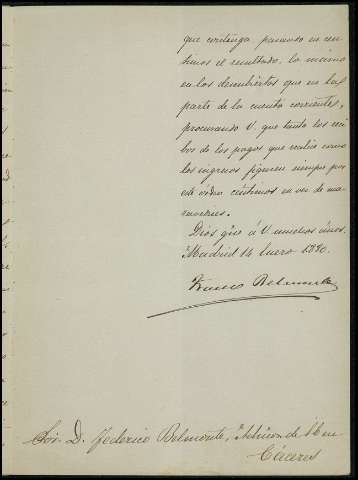 que contenga, pasando en cen-
timos el resultado, lo mismo
en los descubiertos que en la
parte de la cuenta corriente,
procurando V. que tanto los reci-
bos de los pagos que realice como
los ingresos figuren siempre por
este orden centimos en vez de ma-
ravedises.
Dios gûe á V. muchos años.
Madrid 14 Enero 1880.
Belmonte
Sor. D. Federico Belmonte, de
Cáceres